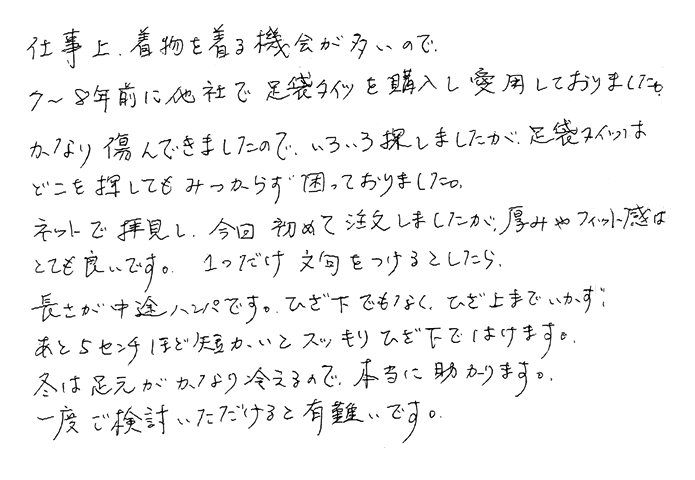 仕事上、着物を着る機会が多いので、
7～8年前に他社で足袋タイツを購入し愛用しておりました。
かなり傷んできましたので、いろいろ探しましたが、足袋タイツは
どこを探してもみつからず困っておりました。
ネットで拝見し、今回初めて注文しましたが、厚みやフィット感は
とても良いです。1つだけ文句をつけるとしたら、
長さが中途ハンパです。ひざ下でもなく、ひざ上までいかず、
あと5センチほど短かいとスッキリひざ下ではけます。
冬は足元がかなり冷えるので、本当に助かります。
一度ご検討いただけると有難いです。